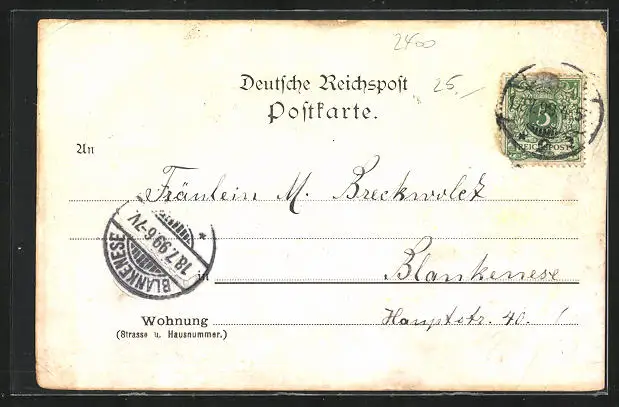 2400
Deutsche Reichspost
25.-
Postkarte.
5
REICHSPOST
An
Fräulein M. Breckwoldt
BLANKENESE
18.7.99.6-7V.
in Blankenese
Hauptstr. 40.
Wohnung
(Strasse u. Hausnummer.)